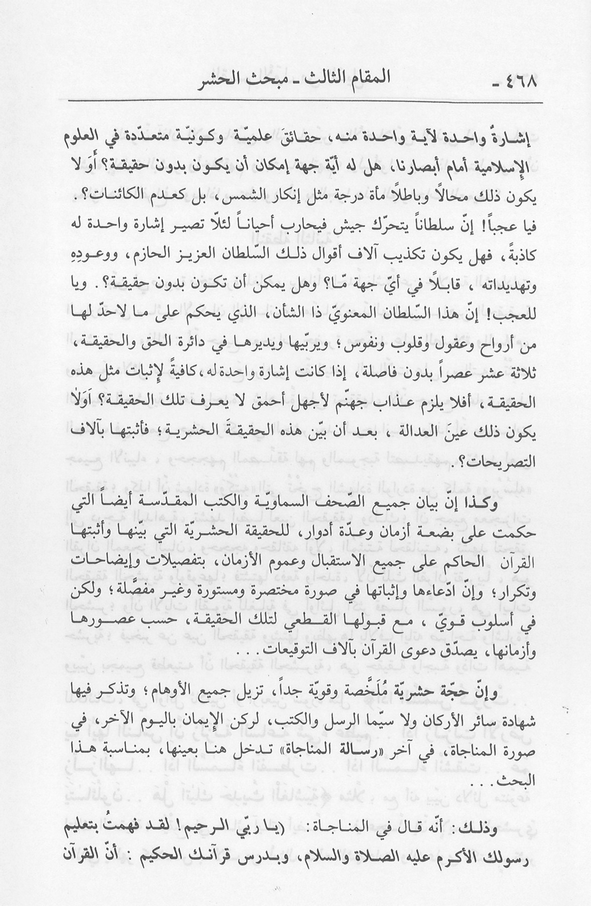 ٤٦٨ - المقام الثالث - مبحث الحشر
إشارةٌ واحدة لآية واحدة منه، حقائقَ علميّة وكونيّة متعدّدة في العلوم
الإسلامية أمام أبصارنا، هل له أيّة جهة إمكان أن يكون بدون حقيقة؟ أَوَ لا
يكون ذلك محالاً وباطلاً مأة درجة مثل إنكار الشمس، بل كعدم الكائنات؟.
فيا عجباً! إنّ سلطاناً يتحرّك جيش فيحارب أحياناً لئلّا تصير إشارة واحدة له
كاذبةً، فهل يكون تكذيب آلاف أقوال ذلك السّلطان العزيز الحازم، ووعودِهِ
وتهديداته ، قابلًا في أيّ جهة مّا؟ وهل يمكن أن تكون بدون حقيقة؟. ويا
للعجب! إنّ هذا السّلطان المعنويّ ذا الشأن، الذي يحكم على ما لاحدّ لها
من أرواح وعقول وقلوب ونفوس؛ ويربّيها ويديرها في دائرة الحق والحقيقة،
ثلاثة عشر عصراً بدون فاصلة، إذا كانت إشارة واحدة له، كافيةً لإثبات مثل هذه
الحقيقة، أفلا يلزم عذاب جهنّم لأجهل أحمق لا يعرف تلك الحقيقة؟ اَوَلاٰ
يكون ذلك عينَ العدالة ، بعد أن بيّن هذه الحقيقةَ الحشرية؛ فأثبتها بآلاف
التصريحات؟.
وكذا إنّ بيان جميع الصّحف السماويّة والكتب المقدّسة أيضاً التي
حكمت على بضعة أزمان وعدّة أدوار، للحقيقة الحشريّة التي بيّنها وأثبتها
القرآن الحاكم على جميع الاستقبال وعموم الأزمان، بتفصيلات وإيضاحات
وتكرار؛ وإنّ ادّعاءها وإثباتها في صورة مختصرة ومستورة وغير مفصَّلة؛ ولكن
في أسلوب قويّ ، مع قبولها القطعي لتلك الحقيقة، حسب عصورها
وأزمانها، يصدّق دعوى القرآن بآلاف التوقيعات...
وإنّ حجّة حشريّة مُلَخَّصة وقويّة جداً، تزيل جميع الأوهام؛ وتذكر فيها
شهادة سائر الأركان ولا سيّما الرسل والكتب، لركن الإيمان باليوم الآخر، في
صورة المناجاة، في آخر «رسالة المناجاة» تدخل هنا بعينها، بمناسبة هذا
البحث...
وذلك: أنّه قال في المناجاة: (يا ربّي الرحيم! لقد فهمتُ بتعليم
رسولك الأكرم عليه الصلاة والسلام، وبدرس قرآنك الحكيم : أنّ القرآن